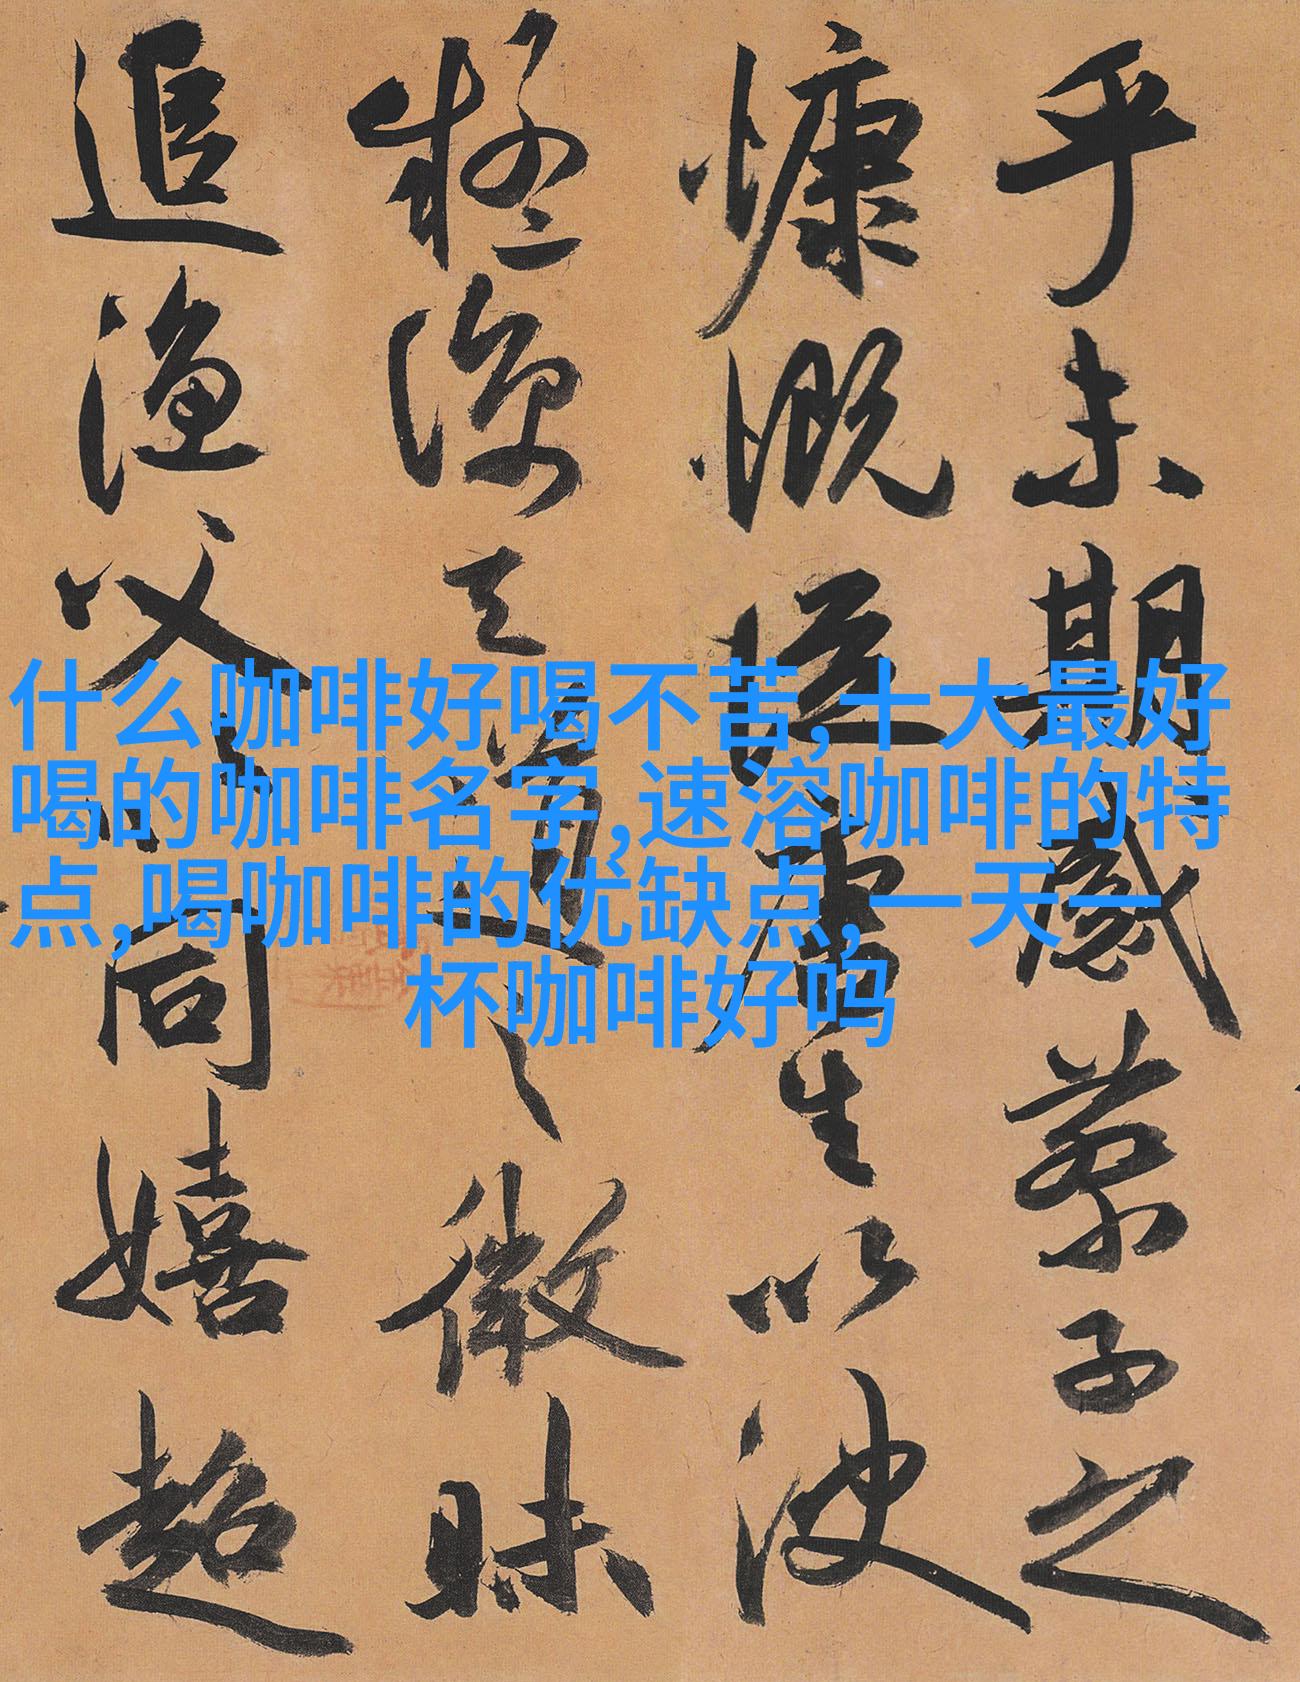 什么咖啡好喝不苦,十大最好
喝的咖啡名字,速溶咖啡的特
点,喝咖啡的优缺点,一天一
杯咖啡好吗
乎未期感蔡子之
慷慨從唐生以決
疑諒天道之微昧
追漁父以同嬉超